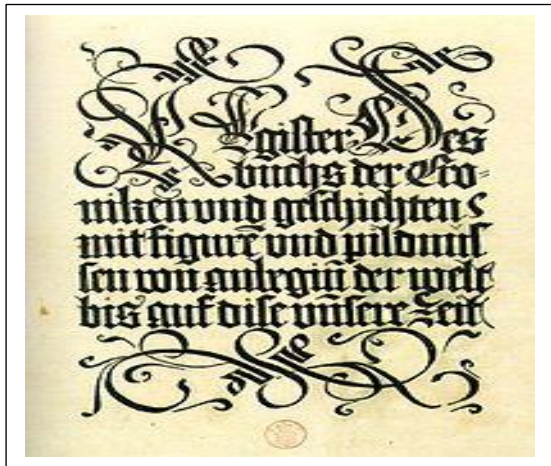 REgister Des
buchs der Cro=
niken und geschichten
mit figurē und pildnus
sen von anbegiñ der welt
bis auf dise uñsere Zeit